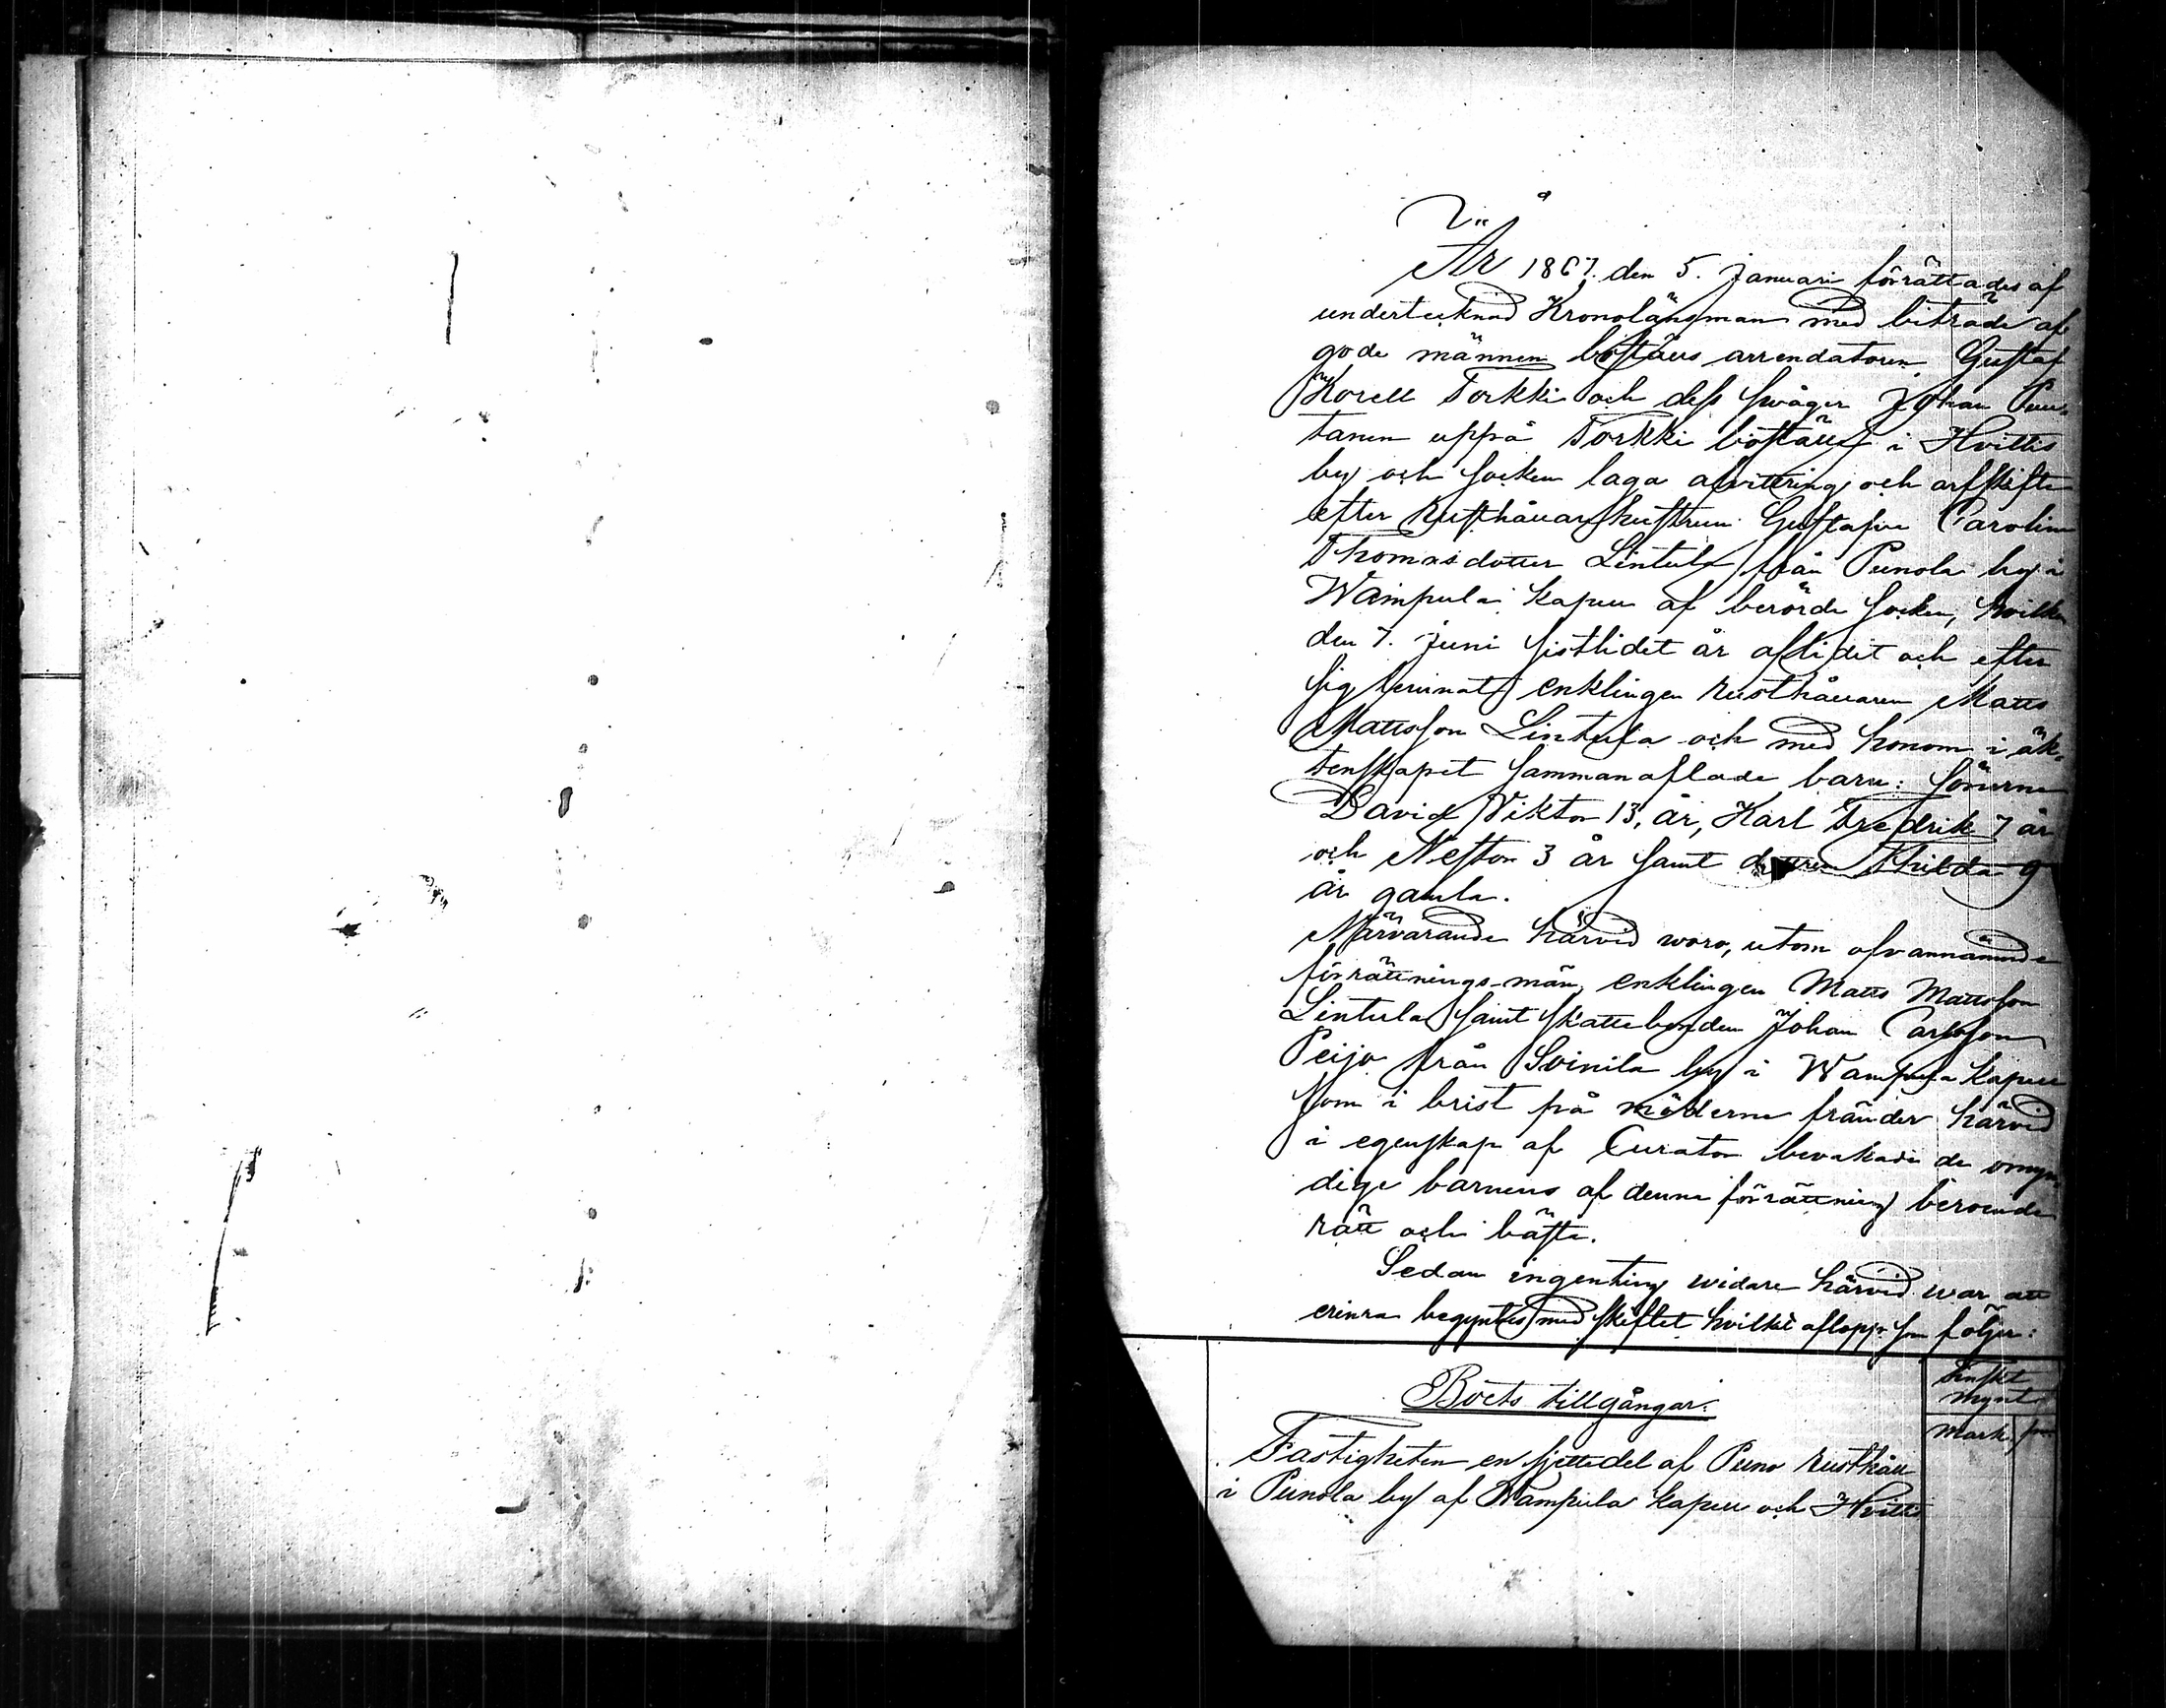 År 1867 den 5. Januari förrättades af
undertecknad Kronolänsman med biträde af
gode männen boställs arrendatoren Gustaf
Korell Torkki och dess swåger Johan Puu-
tanen uppå Torkki boställe i Hvittis
by och socken laga afvittring och arfskifte
efter Rusthållarehustrun Gustafva Carolina
Thomasdotter Lintula från Punola by i
Wampula kapell af berörde socken, hvilken
den 7. Juni sistlidet år aflidit och efter
sig lemnat enklingen rusthållaren Matts
Mattsson Lintula och med honom i äk-
tenskapet sammanaflade barn: sönerne
David Viktor 13, år, Karl Fredrik 7 år
och Nestor 3 år samt dottren Thilda 9
år gamla.
Närvarande härvid woro, utom ofvannämnde
förrättnings-män, enklingen Matts Mattsson
Lintula samt skattebonden Johan Carlsson
Peijo från Soinila by i Wampula kapell
som i brist på möderne fränder härvid
i egenskap af Curator bevakade de omyn-
dige barnens af denna förrättning beroende
rätt och bästa.
Sedan ingenting widare härvid war att
erinra begyntes med skiftet hvilket aflopp som följer:
Finskt
mynt
Boets tillgångar.
mark
Fastigheten en sjettedel af Puno Rusthåll
i Punola by af Wampula kapell och Hvittis